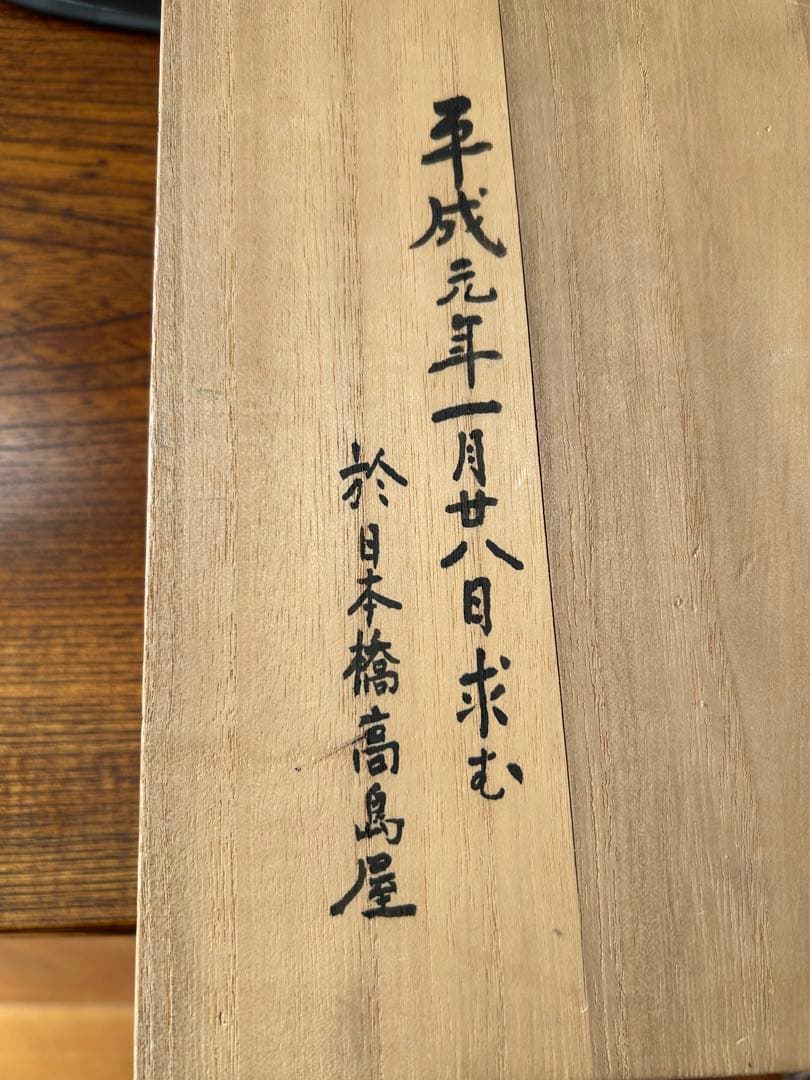 平成元年一月廿八日求む
於日本橋高島屋